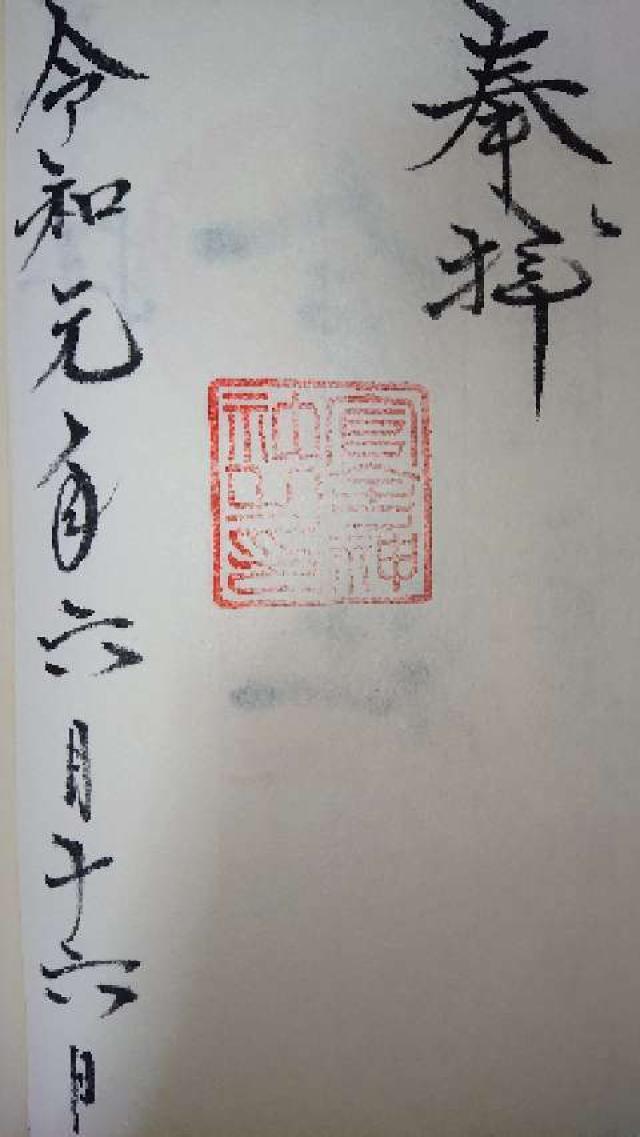 奉拝
令和元年六月十六日